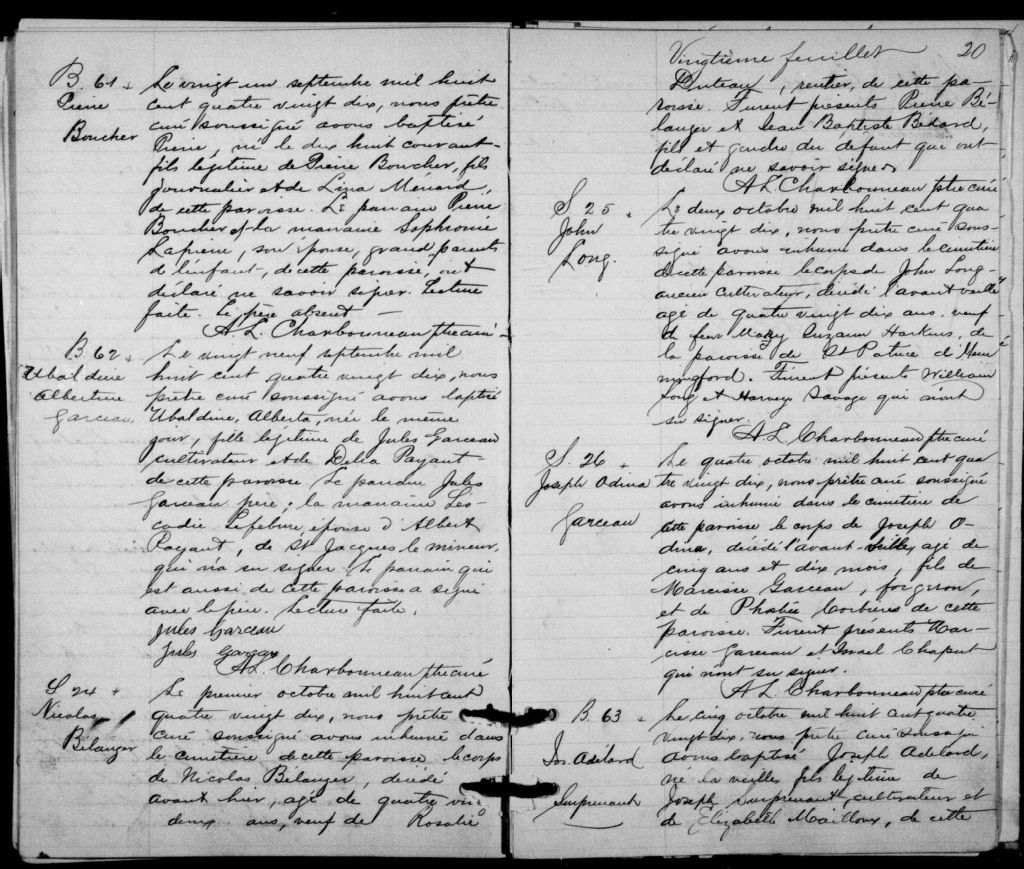 B. 61
Pierre
Boucher
Le vingt un septembre mil huit
cent quatre vingt dix, nous prêtre
curé soussigné avons baptisé
Pierre, né le dix huit courant
fils légitime de Pierre Boucher, fils
journalier et de Lina Ménard,
de cette paroisse. Le parrain Pierre
Boucher et la marraine Sophronie
Lapierre, son épouse, grand parents
de l'enfant, de cette paroisse, ont
déclaré ne savoir signer. Lecture
faite. Le père absent
A. L. Charbonneau ptre curé
B. 62
Ubaldine
Albertine
Garceau
Le vingt neuf septembre mil
huit cent quatre vingt dix, nous
prêtre curé soussigné avons baptisé
Ubaldine, Alberta, née le même
jour, fille légitime de Jules Garceau
cultivateur et de Delia Payant
de cette paroisse. Le parrain Jules
Garceau père; la marraine Léo-
cadie Lefebvre, épouse d'Albert
Payant, de St Jacques le mineur,
qui n'a su signer. Le parrain qui
est aussi de cette paroisse a signé
avec le père. Lecture faite.
Jules Garceau
Jules Garceau
A. L. Charbonneau ptre curé
S 24
Nicolas
Bélanger
Le premier octobre mil huit cent
quatre vingt dix, nous prêtre
curé soussigné avons inhumé dans
le cimetière de cette paroisse le corps
de Nicolas Bélanger, décédé
avant hier, agé de quatre vin
deux ans, veuf de Rosalie
Vingtième feuillet 20
Duteau, rentier, de cette pa-
roisse. Furent présents Pierre Bé-
langer et Jean Baptiste Bédard,
fils et gendre du défunt qui ont
déclaré ne savoir signer
A L Charbonneau ptre curé
S. 25
John
Long.
Le deux octobre mil huit cent qua
tre vingt dix, nous prêtre curé sous-
signé avons inhumé dans le cimetière
de cette paroisse le corps de John Long
ancien cultivateur, décédé l'avant veille
agé de quatre vingt dix ans. veuf
de feue Mary Suzann Harkins, de
la paroisse de St Patrice d'Hem
mingford. Furent présents William
Long et Harvey Savage qui n'ont
su signer.
A L. Charbonneau ptre curé
S. 26
Joseph Odina
Garceau
Le quatre octobre mil huit cent qua
tre vingt dix, nous prêtre curé soussigné
avons inhumé dans le cimetière de
cette paroisse le corps de Joseph O-
dina, décédé l'avant-veille, agé de
cinq ans et dix mois, fils de
Narcisse Garceau, forgeron,
et de Phoebée Corbière de cette
paroisse. Furent présents Nar-
cisse Garceau et Israel Chaput
qui n'ont su signer.
A L. Charbonneau ptre curé
B. 63
Jos. Adélard
Surprenant
Le cinq octobre mil huit cent quatre
vingt dix, nous prêtre curé soussigné
avons baptisé Joseph Adelard,
né la veille, fils légitime de
Joseph Surprenant, cultivateur et
de Elizabeth Mailloux, de cette